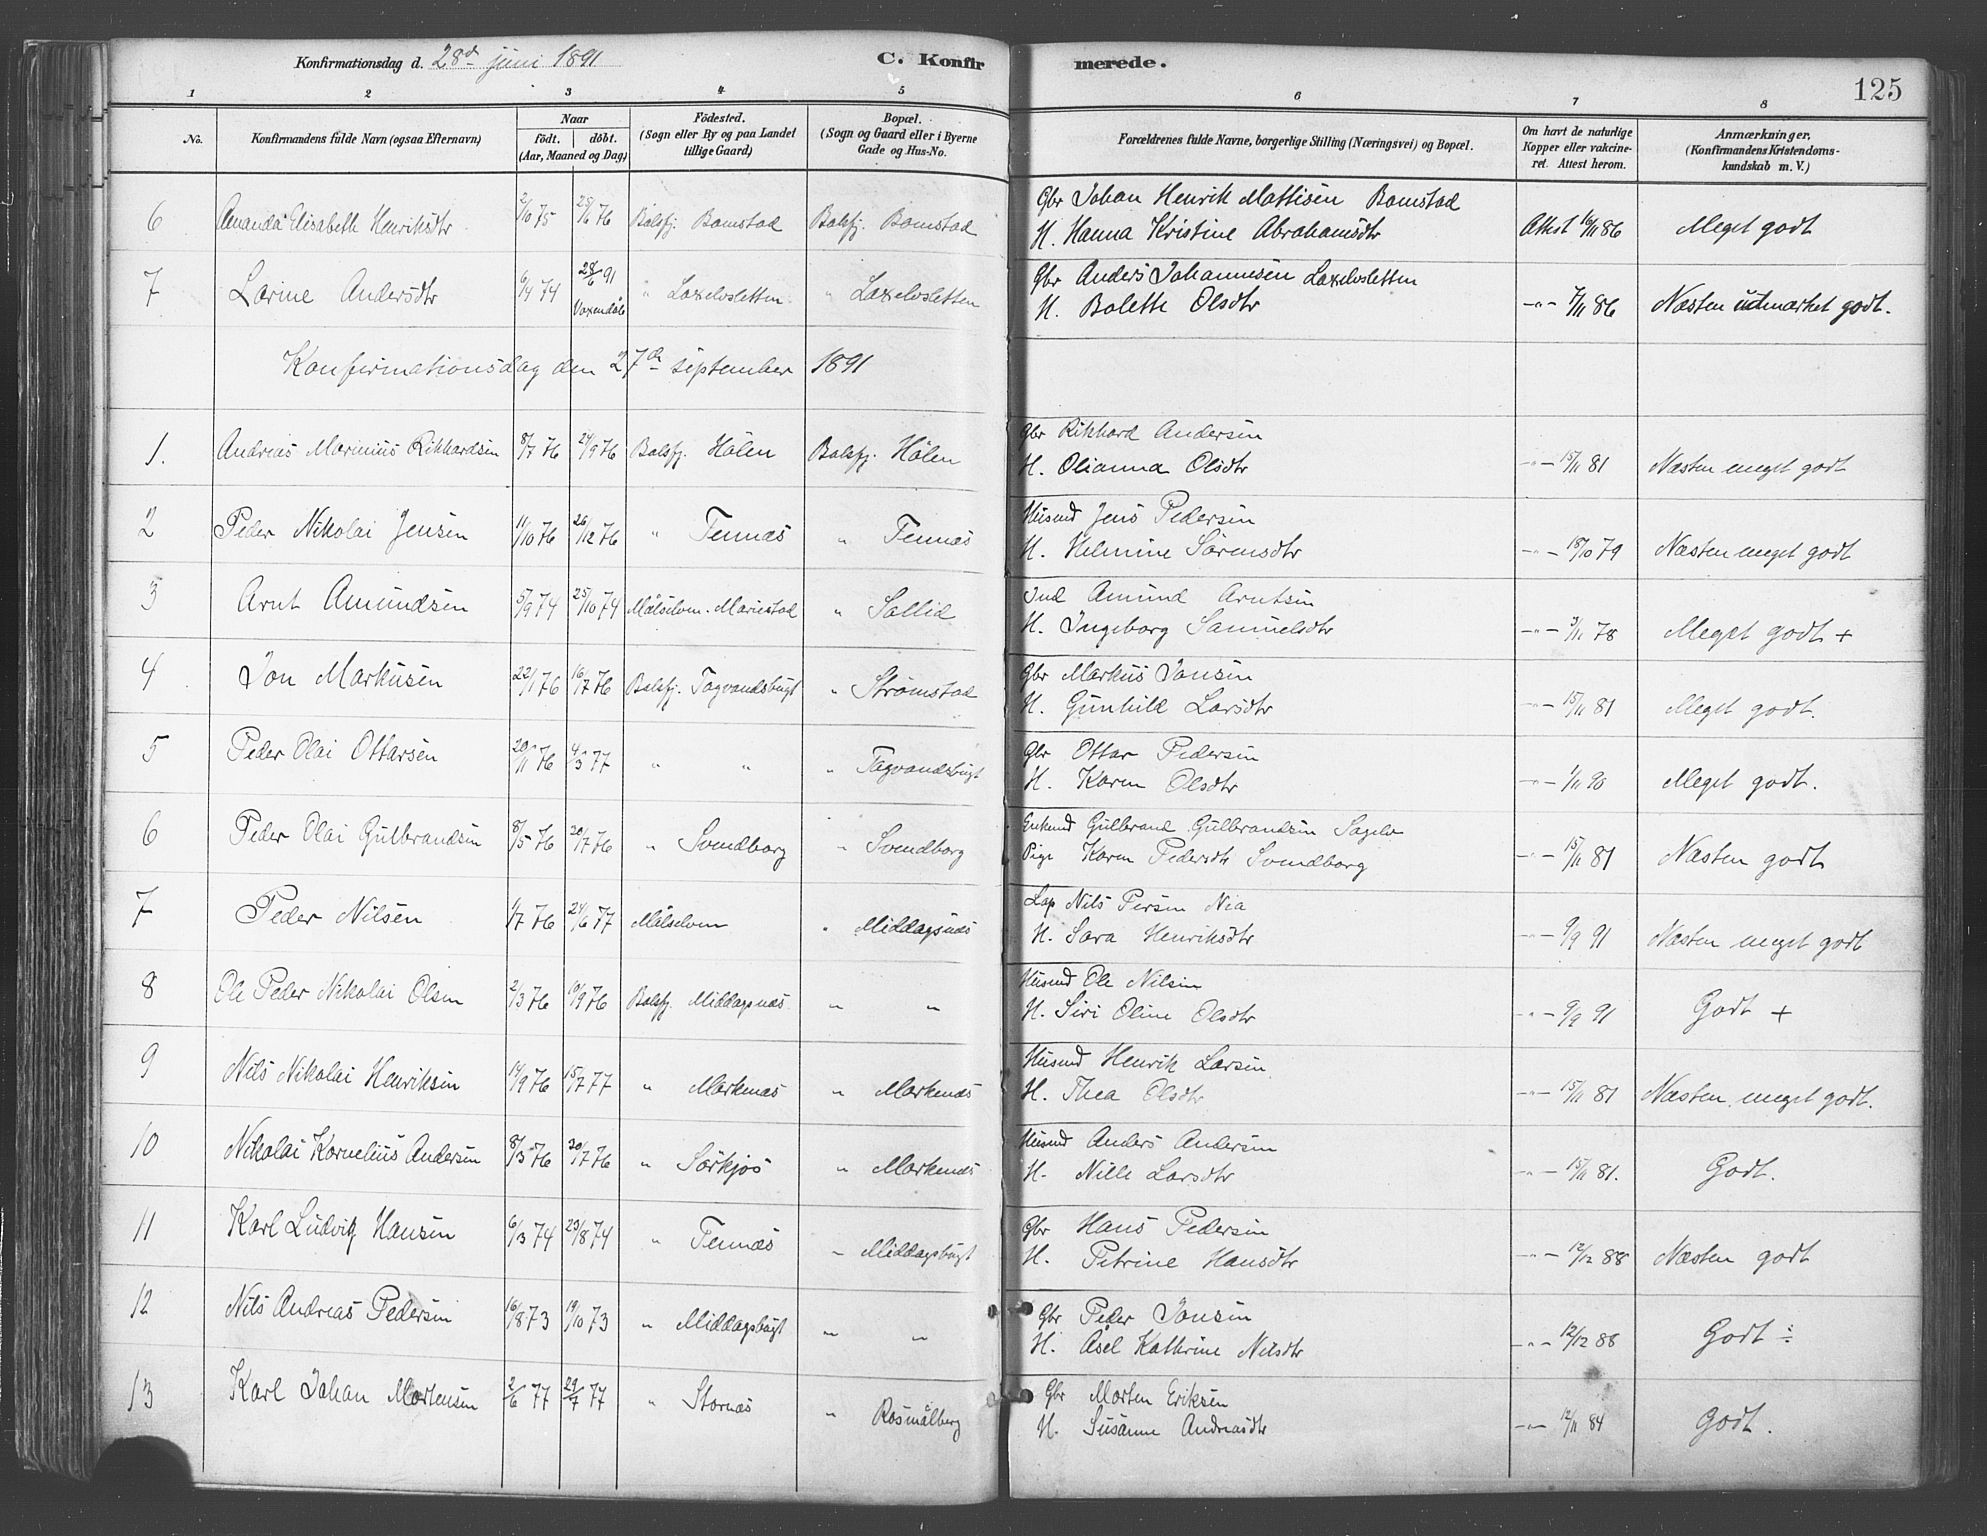 Konfirmationsdag d. 28d juni 1891 C. Konfirmerede. 125
1 2 3 4 5 6 7 8
No. Konfirmandens fulde Navn (ogsaa Efternavn) Naar födt. döbt. (Aar, Maaned og Dag) Födested. (Sogn eller By og paa Landet tillige Gaard) Bopæl. (Sogn og Gaard eller i Byerne Gade og Hus-No. Forældrenes fulde Navne, borgerlige Stilling (Næringsvei) og Bopæl. Om havt de naturlige Kopper eller vakcineret. Attest herom. Anmærkninger, (Konfirmandens Kristendomskundskab m. V.)
6 Amanda Elisabeth Henriksdtr 2/10 75 76 Balsfj. Bomstad Balsfj. Bomstad Gbr Johan Henrik Mattisen Bomstad
H. Hanna Kristine Abrahamsdtr Attest 16/11 86 Meget godt
7 Larine Andersdtr 6/4 74 28/6 91 " Laxelvsletten " Laxelvsletten Gbr Anders Johannesen Laxelvsletten
Voxendåb H. Bolette Olsdtr -"- 7/11 86 Næsten udmærket godt.
Konfirmationsdag den 27de september 1891
1. Andreas Marinius Rikhardsen 8/7 76 24/9 76 Balsfj. Hølen Balsfj. Hølen Gbr Rikhard Andersen
H. Olianna Olsdtr -"- 15/11 81 Næsten meget godt
2 Peder Nikolai Jensen 11/10 76 26/12 76 " Tennæs " Tennæs Husmd Jens Pedersen
H. Helmine Sørensdtr -"- 18/10 79 Næsten meget godt
3 Arnt Amundsen 5/9 74 25/10 74 Målselven. Mariestad " Sollid Ind Amund Arntsen
H. Ingeborg Samuelsdtr -"- 3/11 78 Meget godt +
4 Jon Markusen 22/1 76 16/7 76 Balsfj. Tagvandsbugt " Strømstad Gbr Markus Jonsen
H. Gunhild Larsdtr -"- 15/11 81 Meget godt.
5 Peder Olai Ottarsen 20/11 76 4/3 77 " " " Tagvandsbugt Gbr Ottar Pedersen
H. Karen Olsdtr -"- 1/11 90 Meget godt.
6 Peder Olai Gulbrandsen 8/5 76 20/7 76 " Svendborg " Svendborg Enkemd Gulbrand Gulbrandsen Sagelv
Pige Karen Pedersdtr Svendborg -"- 15/11 81 Næsten godt
7 Peder Nilsen 1/7 76 24/6 77 Målselven " Middagsnæs Lap Nils Persen Nia
H. Sara Henriksdtr -"- 9/9 91 Næsten meget godt
8 Ole Peder Nikolai Olsen 2/3 76 10/9 76 Balsfj. Middagsnæs " " Husmd Ole Nilsen
H. Siri Oline Olsdtr -"- 9/9 91 Godt +
9 Nils Nikolai Henriksen 14/9 76 15/7 77 " Markenæs " Markenæs Husmd Henrik Larsen
H. Thea Olsdtr -"- 15/11 81 Næsten meget godt.
10 Nikolai Kornelius Andersen 8/3 76 20/7 76 " Sørkjos " Markenæs Husmd Anders Andersen
H. Nille Larsdtr -"- 15/11 81. Godt.
11 Karl Ludvik Hansen 6/3 74 23/8 74 " Tennæs " Middagsbugt Gbr Hans Pedersen
H. Petrine Hansdtr -"- 12/12 88 Næsten godt
12 Nils Andreas Pedersen 16/8 73 19/10 73 " Middagsbugt " " Gbr Peder Jonsen
H. Åsel Kathrine Nilsdtr -"- 12/12 88 Godt ÷
13 Karl Johan Mortensen 2/6 77 29/7 77 " Stornæs " Rosmålberg Gbr Morten Eriksen
H. Susanne Andreasdtr -"- 12/11 84 Godt.